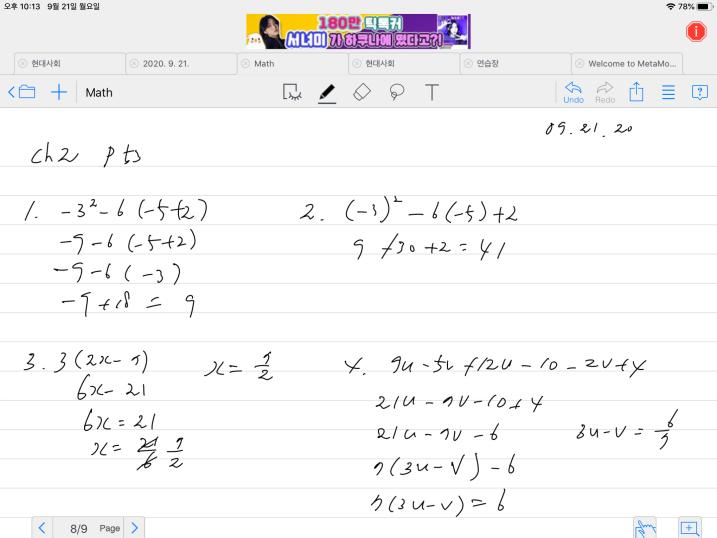 오후 10:13 9월 21일 월요일
78%
180만 틱톡커
서녀미가 하쿠나에 떴다고?!
현대사회
2020. 9. 21.
Math
현대사회
연습장
Welcome to MetaMo...
Math
Undo
Redo
09.21.20
Ch2 Pts
1. -3² - 6 (-5+2)
-9 - 6 (-5+2)
-9 - 6 ( -3)
-9 + 18 = 9
2. (-3)² - 6(-5) + 2
9 +30 +2 = 41
3. 3 (2x - 7)
6x - 21
6x = 21
x = 21/6 7/2
x = 7/2
4. 9u - 5v + 12u - 10 - 2v + 4
21u - 7v - 10 + 4
21u - 7v - 6
7(3u - v) - 6
7(3u - v) = 6
3u - v = 6/7
8/9 Page